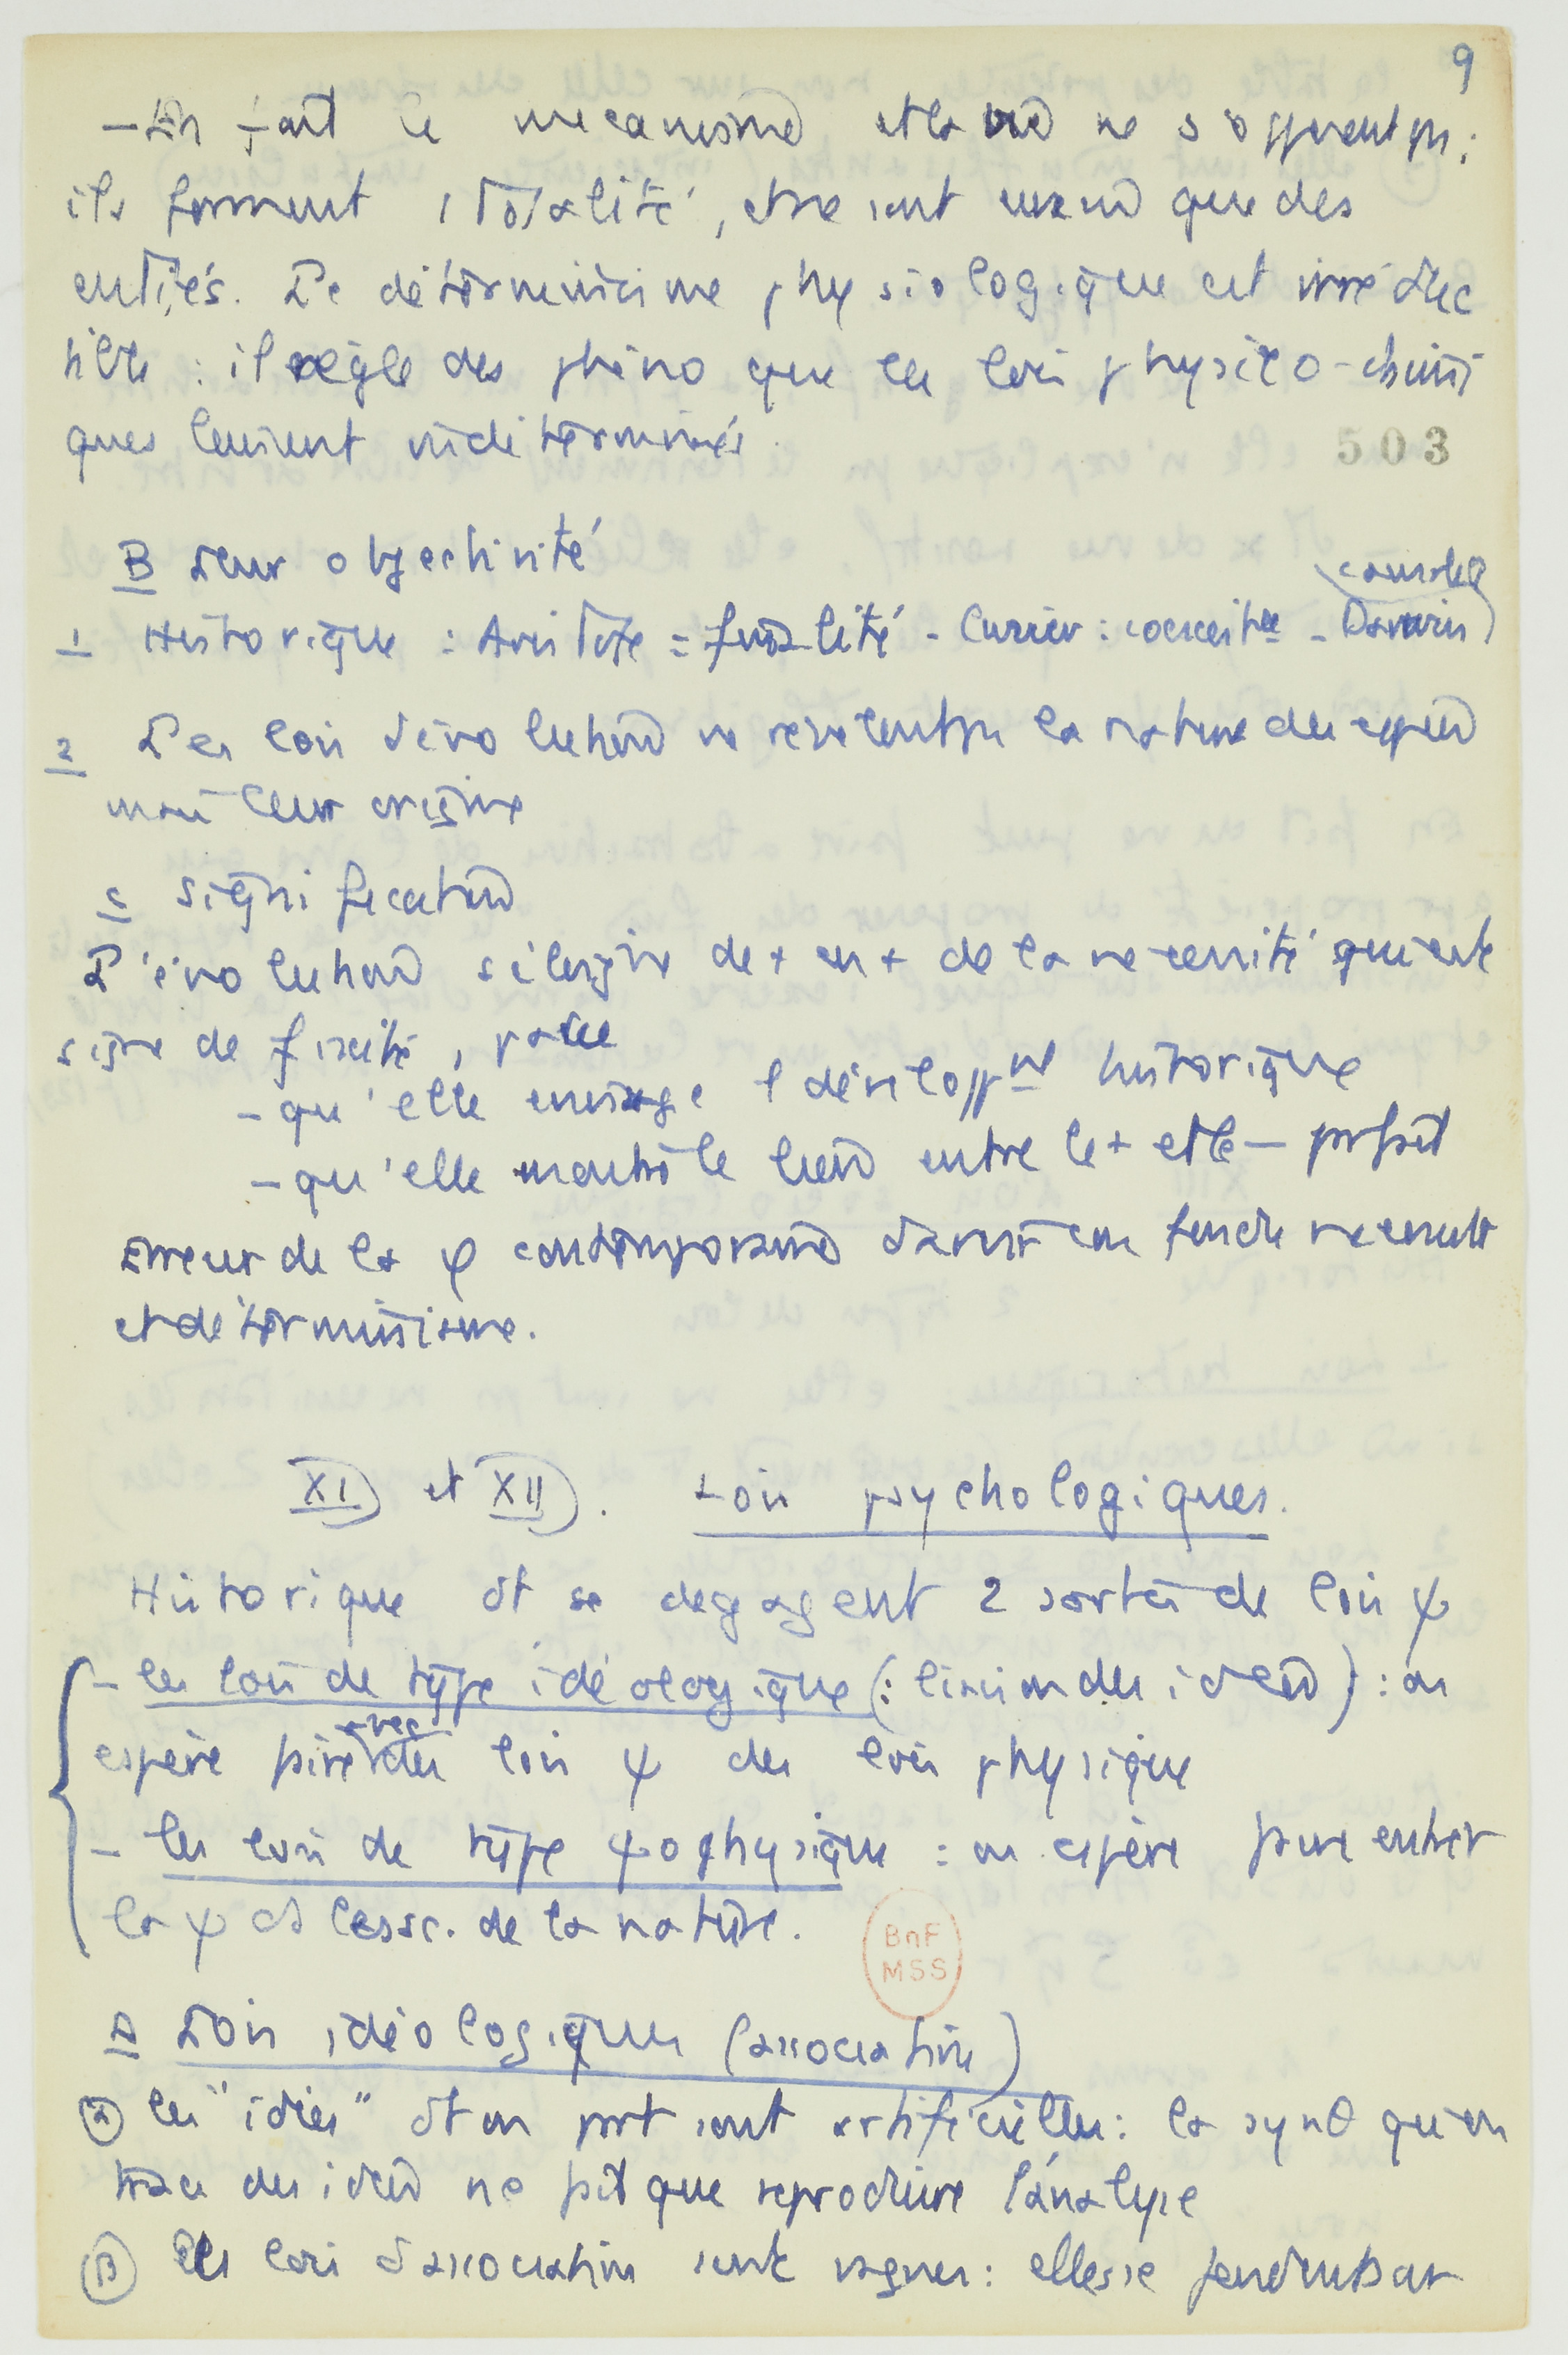 9
- En fait le mecanisme et la vie ne s'opposent pas ;
ils forment 1 totalité, et ne sont meme que des
entités. Le déterminisme physiologique est irréduc
tible : il règle des phéno que les lois physico-chimi
ques laissent indéterminés.
503
B Leur objectivité
causales
1 Historique : Aristote = finalité - Cuvier : coexistce - Darwin
2 Les lois d'évolution ne révèlent pas la nature des espèces
mais leur origine
C Signification
L'évolution s'éloigne de + en + de la nécessité qui est
signe de fixité, parce
- qu'elle envisage 1 développmt historique
- qu'elle montre le lien entre le + et le - parfait
Erreur de la φ contemporaine d'avoir confondu nécessité
et déterminisme.
XI) et XII). Lois psychologiques.
Historique dt se degagent 2 sortes de lois ψ
- les lois de type idéologique (: liaison des idées) : on
avec
espère faire des lois ψ des lois physique
- les lois de type ψophysique : on espère faire entrer
la ψ ds les sc. de la nature.
BnF
MSS
A Lois idéologiques (association)
α les "idées" dt on part sont artificielles : la synθ qu'on
trace des idées ne fait que reproduire l'analyse
β Les lois d'association sont vagues : elles se fondent sur